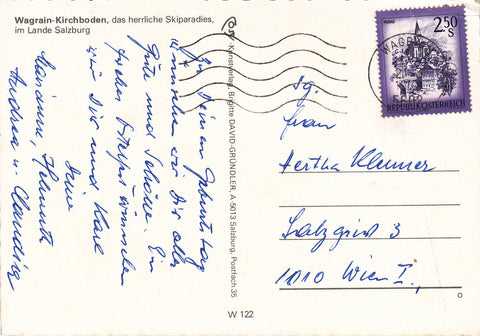 Wagrain-Kirchboden, das herrliche Skiparadies,
im Lande Salzburg
Zu Deinem Geburtstag
wünschen wir Dir alles
Gute und Schöne. Ein
frohes Osterfest wünschen
wir Dir und Karl
Deine
Marianne, Helmuth
Andrea u. Claudia
Kunstverlag, Brigitte DAVID-GRÜNDLER, A-5013 Salzburg, Postfach 35
W 122
2.50
S
REPUBLIK ÖSTERREICH
WAGRAIN
Sg.
Frau
Hertha Klemmer
Salzgries 3
1010 Wien I,